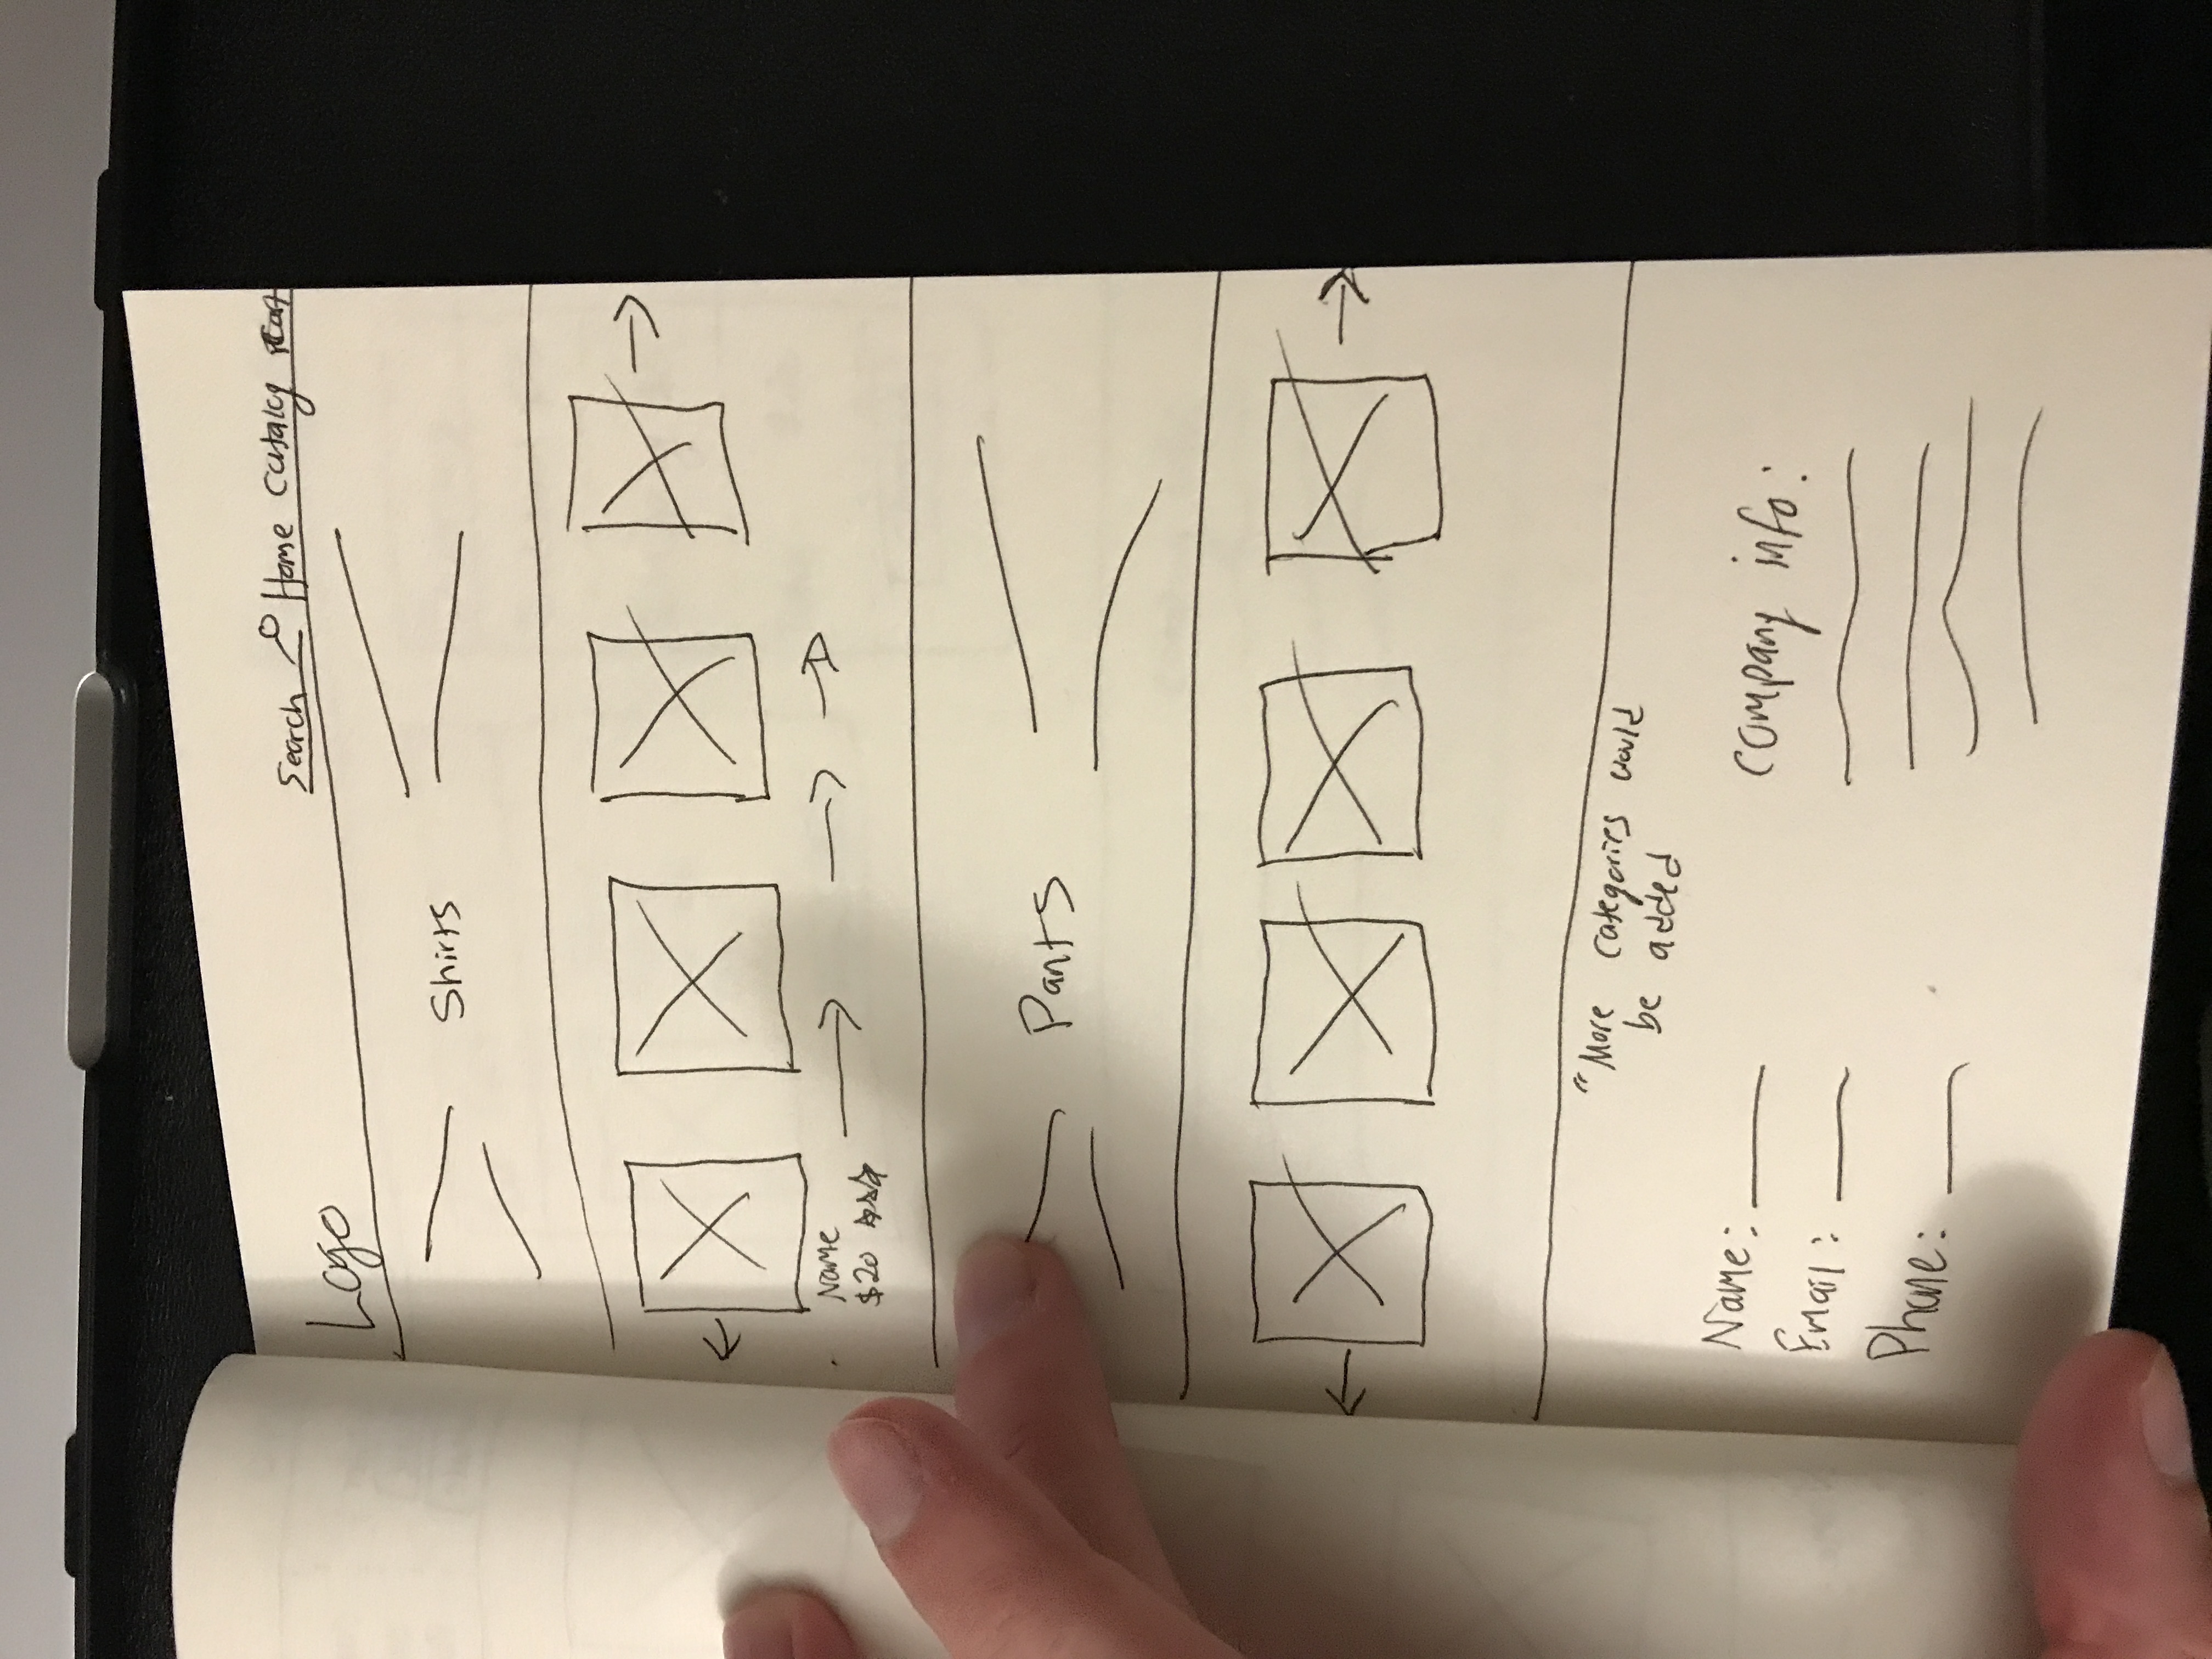 Search Home Catalog Cart
Logo
Shirts
Name
$20
Pants
"More categories would
be added
Name:
Email:
Phone:
Company info: